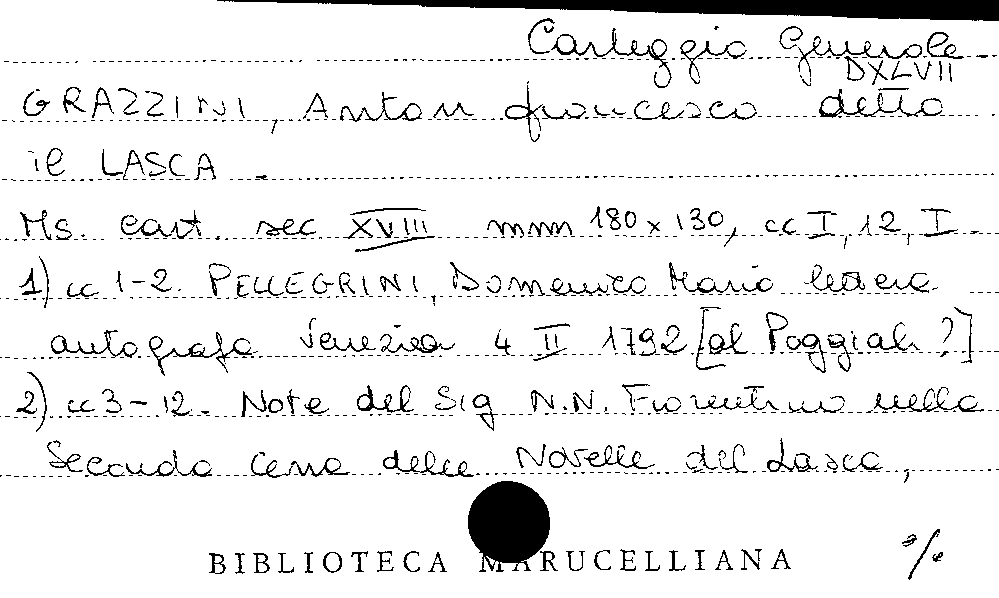 Carteggio Generale
DXLVII
GRAZZINI, Anton francesco detto
il LASCA.
Ms. cart. sec XVIII mm 180x130, cc I, 12, I.
1) cc 1-2. PELLEGRINI, Domenico Maria lettera
autografa Venezia 4 II 1792 [al Poggiali?]
2) cc 3-12. Note del Sig N.N. Fiorentino nella
Seconda Cena delle Novelle del Lasca,
BIBLIOTECA MARUCELLIANA